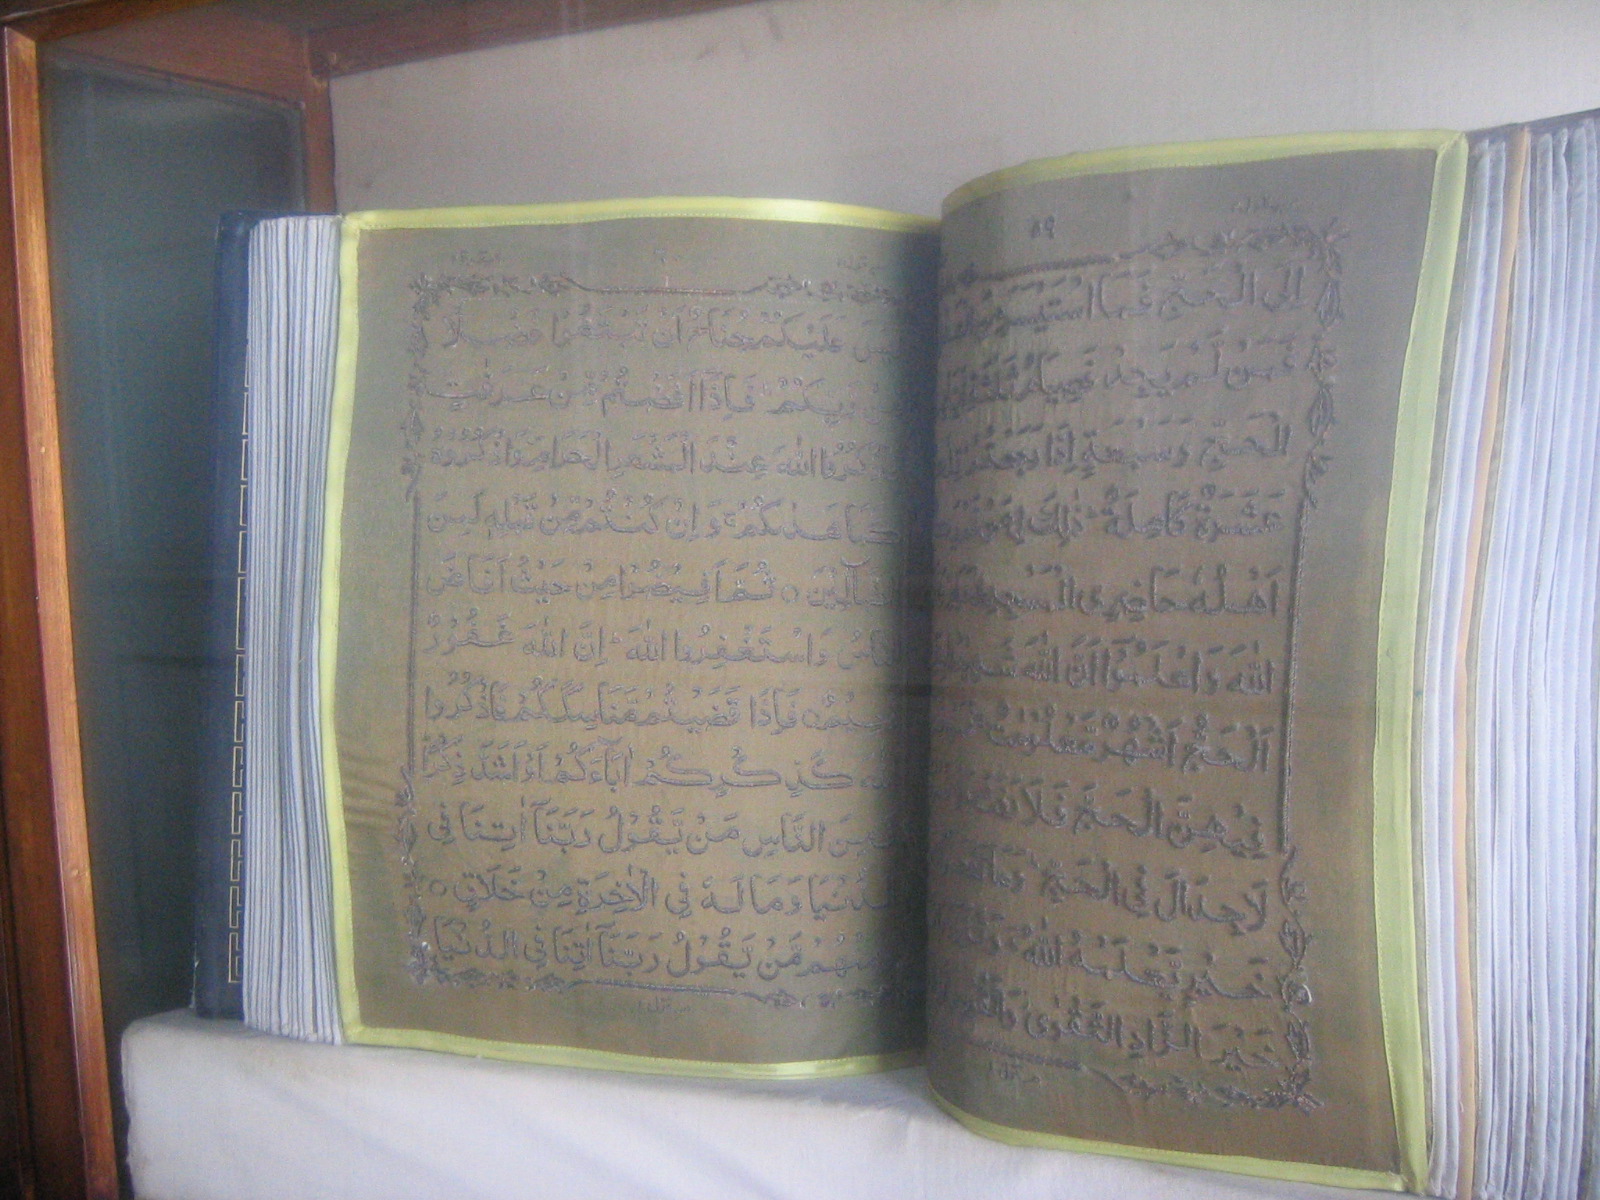 ٨٩
إِلَى الْحَجِّ فَمَا اسْتَيْسَرَ
فَمَنْ لَّمْ يَجِدْ فَصِيَامُ ثَلٰثَةِ
الْحَجِّ وَسَبْعَةٍ إِذَا رَجَعْتُمْ
عَشَرَةٌ كَامِلَةٌ ذٰلِكَ
أَهْلُهٗ حَاضِرِى الْمَسْجِدِ
اللّٰهَ وَاعْلَمُوْا أَنَّ اللّٰهَ شَدِيْدُ
اَلْحَجُّ أَشْهُرٌ مَّعْلُوْمٰتٌ
فِيْهِنَّ الْحَجَّ فَلَا رَفَثَ
لَاجِدَالَ فِى الْحَجِّ وَمَا
خَيْرٍ يَّعْلَمْهُ اللّٰهُ
خَيْرَ الزَّادِ التَّقْوٰى
عَلَيْكُمْ جُنَاحٌ أَنْ تَبْتَغُوْا فَضْلًا
رَّبِّكُمْ فَإِذَا أَفَضْتُمْ مِّنْ عَرَفٰتٍ
فَاذْكُرُوا اللّٰهَ عِنْدَ الْمَشْعَرِ الْحَرَامِ وَاذْكُرُوْهُ
كَمَا هَدٰىكُمْ وَإِنْ كُنْتُمْ مِّنْ قَبْلِهٖ لَمِنَ
الضَّآلِّيْنَ ○ ثُمَّ أَفِيْضُوْا مِنْ حَيْثُ أَفَاضَ
النَّاسُ وَاسْتَغْفِرُوا اللّٰهَ إِنَّ اللّٰهَ غَفُوْرٌ
رَّحِيْمٌ ○ فَإِذَا قَضَيْتُمْ مَّنَاسِكَكُمْ فَاذْكُرُوا
كَذِكْرِكُمْ اٰبَآءَكُمْ أَوْ أَشَدَّ ذِكْرًا
فَمِنَ النَّاسِ مَنْ يَّقُوْلُ رَبَّنَآ اٰتِنَا فِى
الدُّنْيَا وَمَا لَهٗ فِى الْاٰخِرَةِ مِنْ خَلَاقٍ ○
مِنْهُمْ مَّنْ يَّقُوْلُ رَبَّنَآ اٰتِنَا فِى الدُّنْيَا